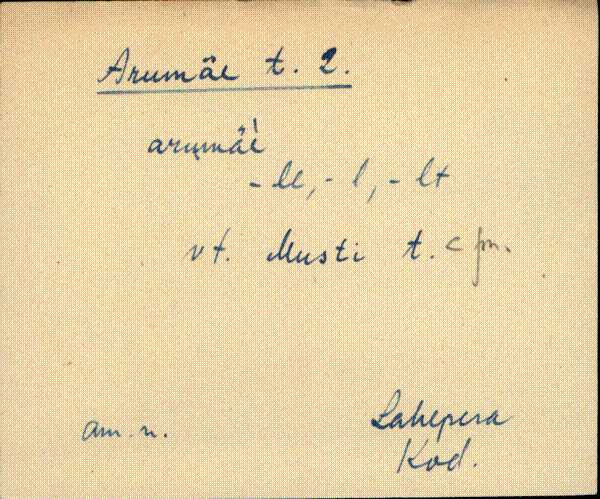 Arumäe t. 2.
arumäè
- le, - l, - lt
vt. Musti t. < pn.
am. n.
Lahepera
Kod.